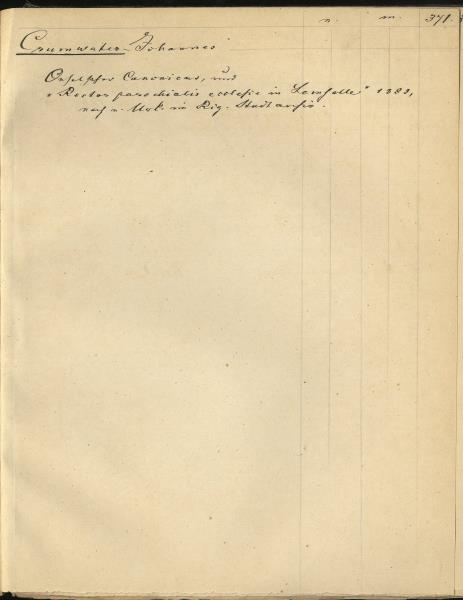 n. m. 371.
Crumwater, Johannes
Oeselscher Canonicus, und
"Rector parochialis ecclesie in Lemsselle" 1382,
nach e. Urk. im Rig. Stadtarchiv.